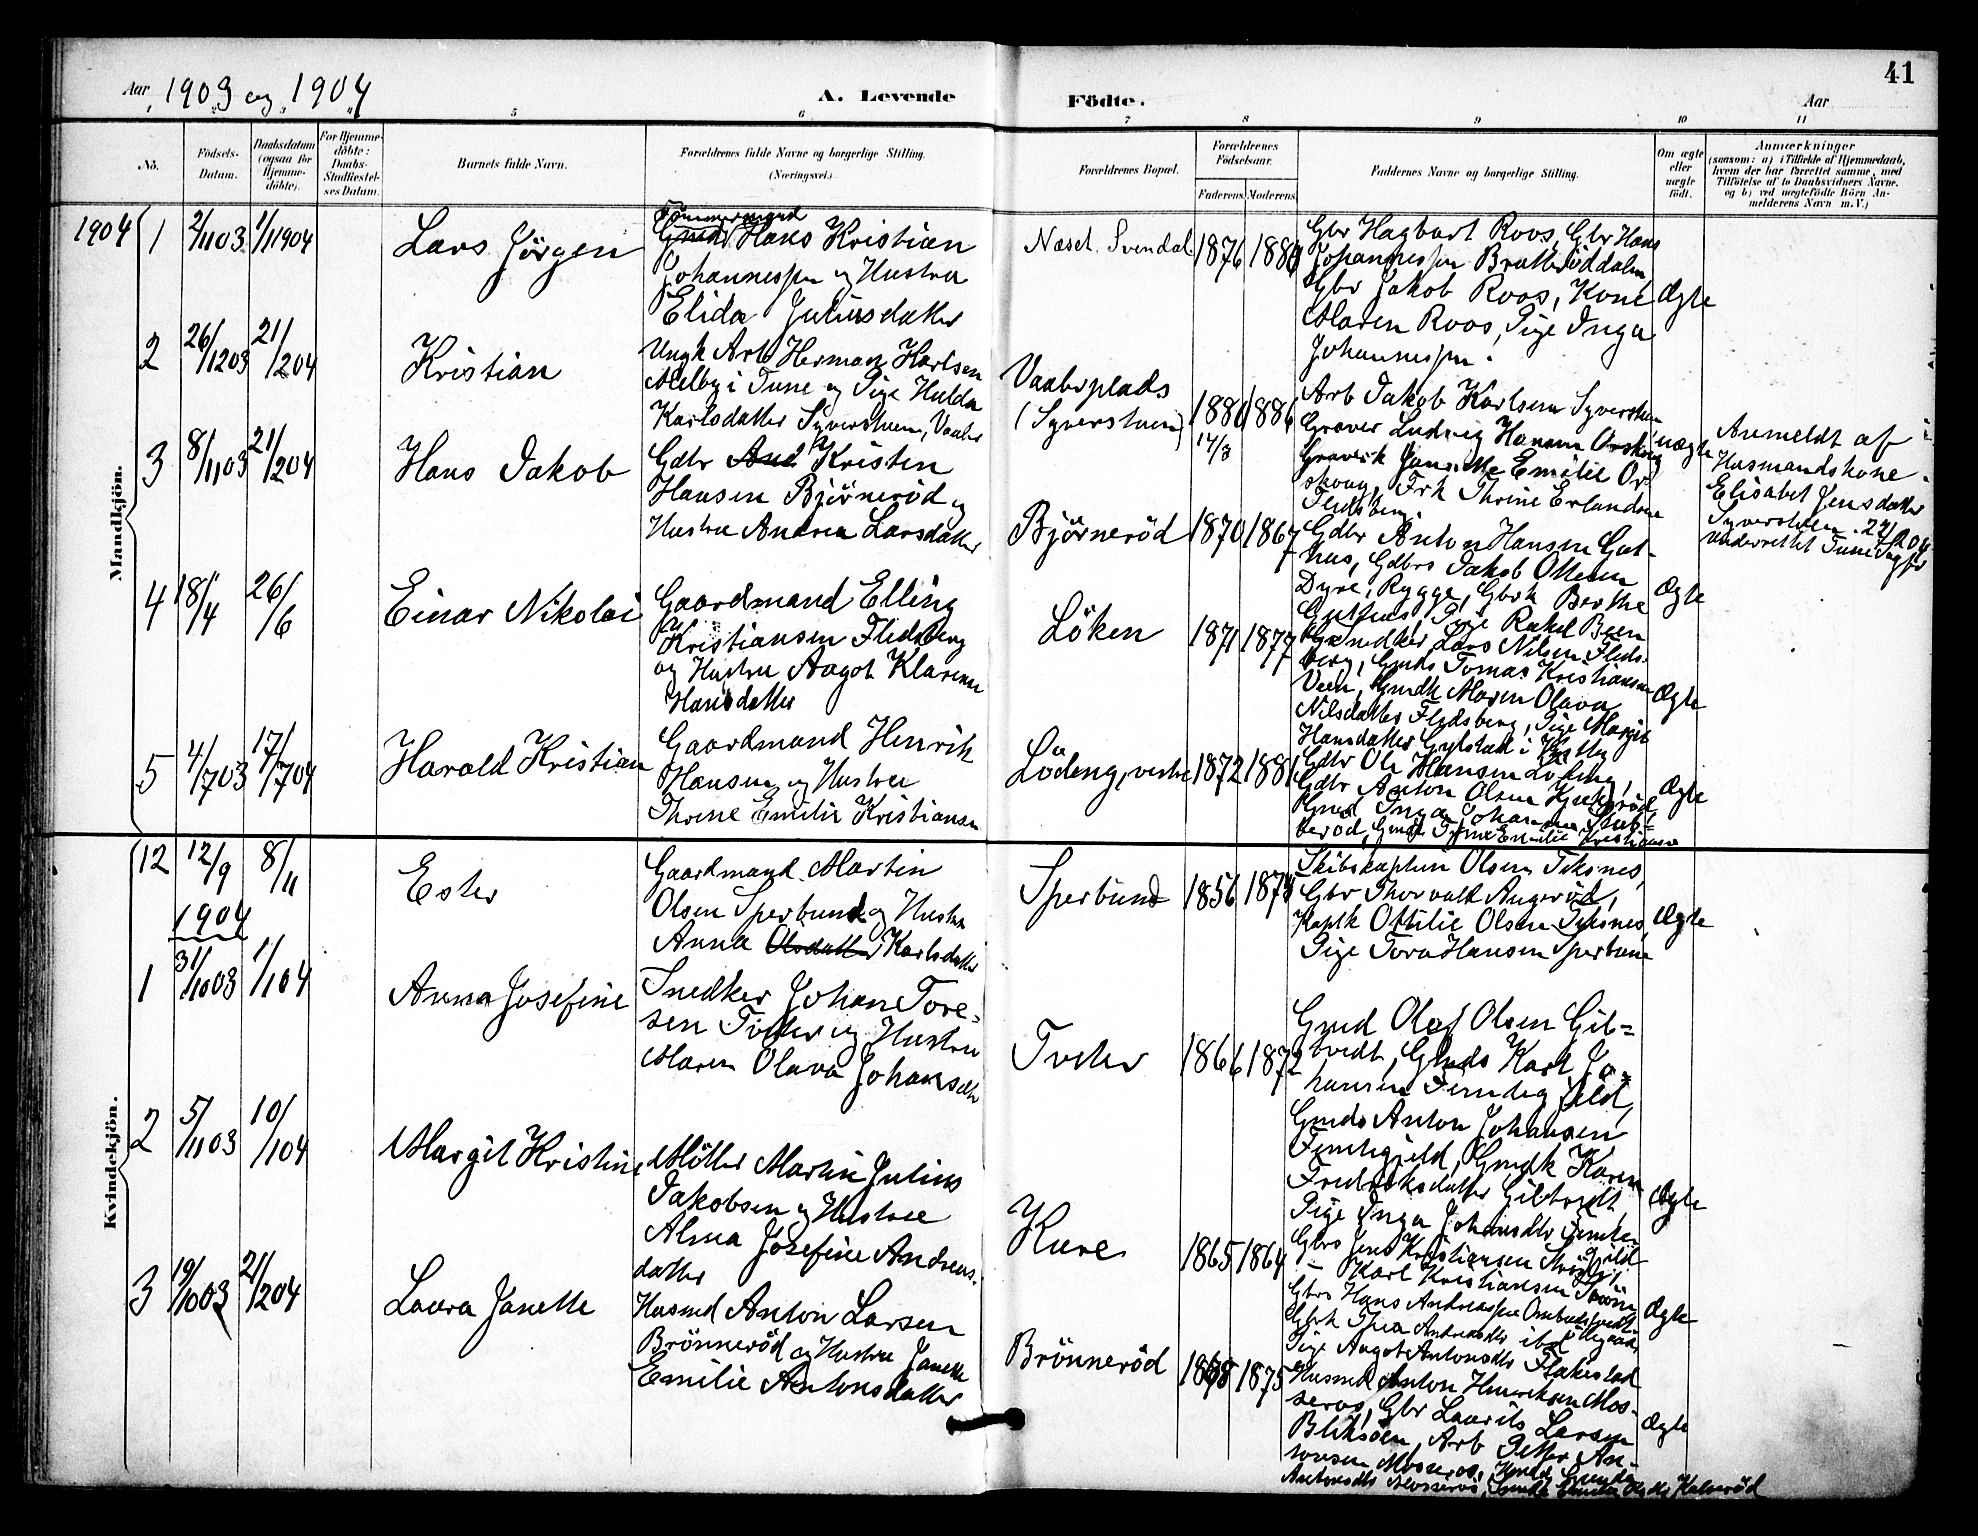 41
Aar 1903 og 1904
A. Levende Födte.
Aar
1 2 3 4 5 6 7 8 9 10 11
No.
Födsels-
Datum.
Daabsdatum
(ogsaa for
Hjemme-
döbte).
For Hjemme-
döbte:
Daabs-
Stadfæstel-
ses Datum.
Barnets fulde Navn.
Forældrenes fulde Navne og borgerlige Stilling.
(Næringsvei.)
Forældrenes Bopæl.
Forældrenes
Födselsaar.
Faderens. Moderens.
Faddernes Navne og borgerlige Stilling.
Om ægte
eller
uægte
födt.
Anmærkninger
(saasom: a) i Tilfælde af Hjemmedaab,
hvem der har forrettet samme, med
Tilföielse af to Daabsvidners Navne,
og b) ved uægtefödte Börn An-
melderens Navn m. V.)
Mandkjön.
1904
1 2/11 03 1/1 1904
Lars Jørgen
Tömmermand
Gmd Hans Kristian
Johannessen og Hustru
Elida Juliusdatter
Næset Svendal
1876
Gbr Hagbart Roos, Gbr Hans
Johannessen Bratterøddalen,
Gbr Jakob Roos, Kone
Maren Roos, Pige Inga
Johannessen.
Ægte
2 26/12 03 21/2 04
Kristian
Ungk Arb Herman Karlsen
Melby i Tune og Pige Hulda
Karlsdatter Syverstuen, Vaaler
Vaalerplads
(Syverstuen)
1880 14/3 1886
Arb Jakob Karlsen Syverstuen
Graver Ludvig Hansen Orskoug
Graverk Janette Emilie Or
skoug, Frk Thrine Erlandsen
Fledsberg.
uægte
Anmeldt af
Husmandskone
Elisabet Jensdatter
Syverstuen 22/2 04
underrettet Tune Sogpr
3 8/11 03 21/2 04
Hans Jakob
Gdbr And Kristen
Hansen Bjørnerød og
Hustru Andrea Larsdatter
Bjørnerød
1870 1867
Gdbr Anton Hansen Gut-
hus, Gdbrs Jakob Ottesen
Dyre, Rygge, Gbrk Berthe
Guthus, Pige Rakel Been
Ægte
4 18/4 26/6
Einar Nikolai
Gaardmand Elling
Kristiansen Fledsberg
og Hustru Aagot Klarine
Hansdatter
Löken
1871 1877
Snedker Lars Nilsen Fleds-
berg, Gmds Tomas Kristiansen
Veen, Gmdk Maren Olava
Nilsdatter Fledsberg, Pige Margit
Hansdatter Gylstad i
Ægte
5 4/7 03 17/7 04
Harald Kristian
Gaardmand Henrik
Hansen og Hustru
Thrine Emilie Kristiansen
Lödeng, vestre
1872 1881
Gdbr Ole Hansen Lödeng,
Gdbr Anton Olsen
Gmd Inga Johanne Stub-
berød,
Ægte
Kvindekjön.
12 12/9 8/11
Ester
Gaardmand Martin
Olsen Sperbund og Hustru
Anna Olsdatter Karlsdatter
Sperbund
1856
Skibskaptein Olsen Teksnes,
Gbr Thorvald Augerød,
Kaptk Ottilie Olsen Teksnes,
Pige Tora Hansen Sperbund
Ægte
1904
1 31/10 03 1/1 04
Anna Josefine
Snedker Johan Tore-
sen Tveter og Hustru
Maren Olava Johansdtr
Tveter
1866 1872
Gmd Olaf Olsen Gil-
tvedt, Gmds Karl Jo-
hansen
Gmds Anton Johansen
Gmdk Karen
Fredriksdatter Giltvedt,
Pige Inga Johansdtr
Ægte
2 5/11 03 10/1 04
Margit Kristine
Møller Martin Julius
Jakobsen og Hustru
Alma Josefine Andreas-
datter
Kure
1865 1864
Gbrs Jens Kristiansen
– Karl Kristiansen
Gbrs Hans Andreassen
Gbrk Thea Andreasdtr ibd
Pige Aagot Antonsdtr Flakestad
Ægte
3 19/10 03 21/2 04
Laura Janette
Husmd Anton Larsen
Brønnerød og Hustru Janette
Emilie Antonsdatter
Brönnerød
1868 1875
Husmd Anton Henriksen Mos-
seros, Gbr Laurits Larsen
Bliksöen, Arb Petter An-
tonsen Mosseros,
Antonsdtr Mosseros,
Ægte